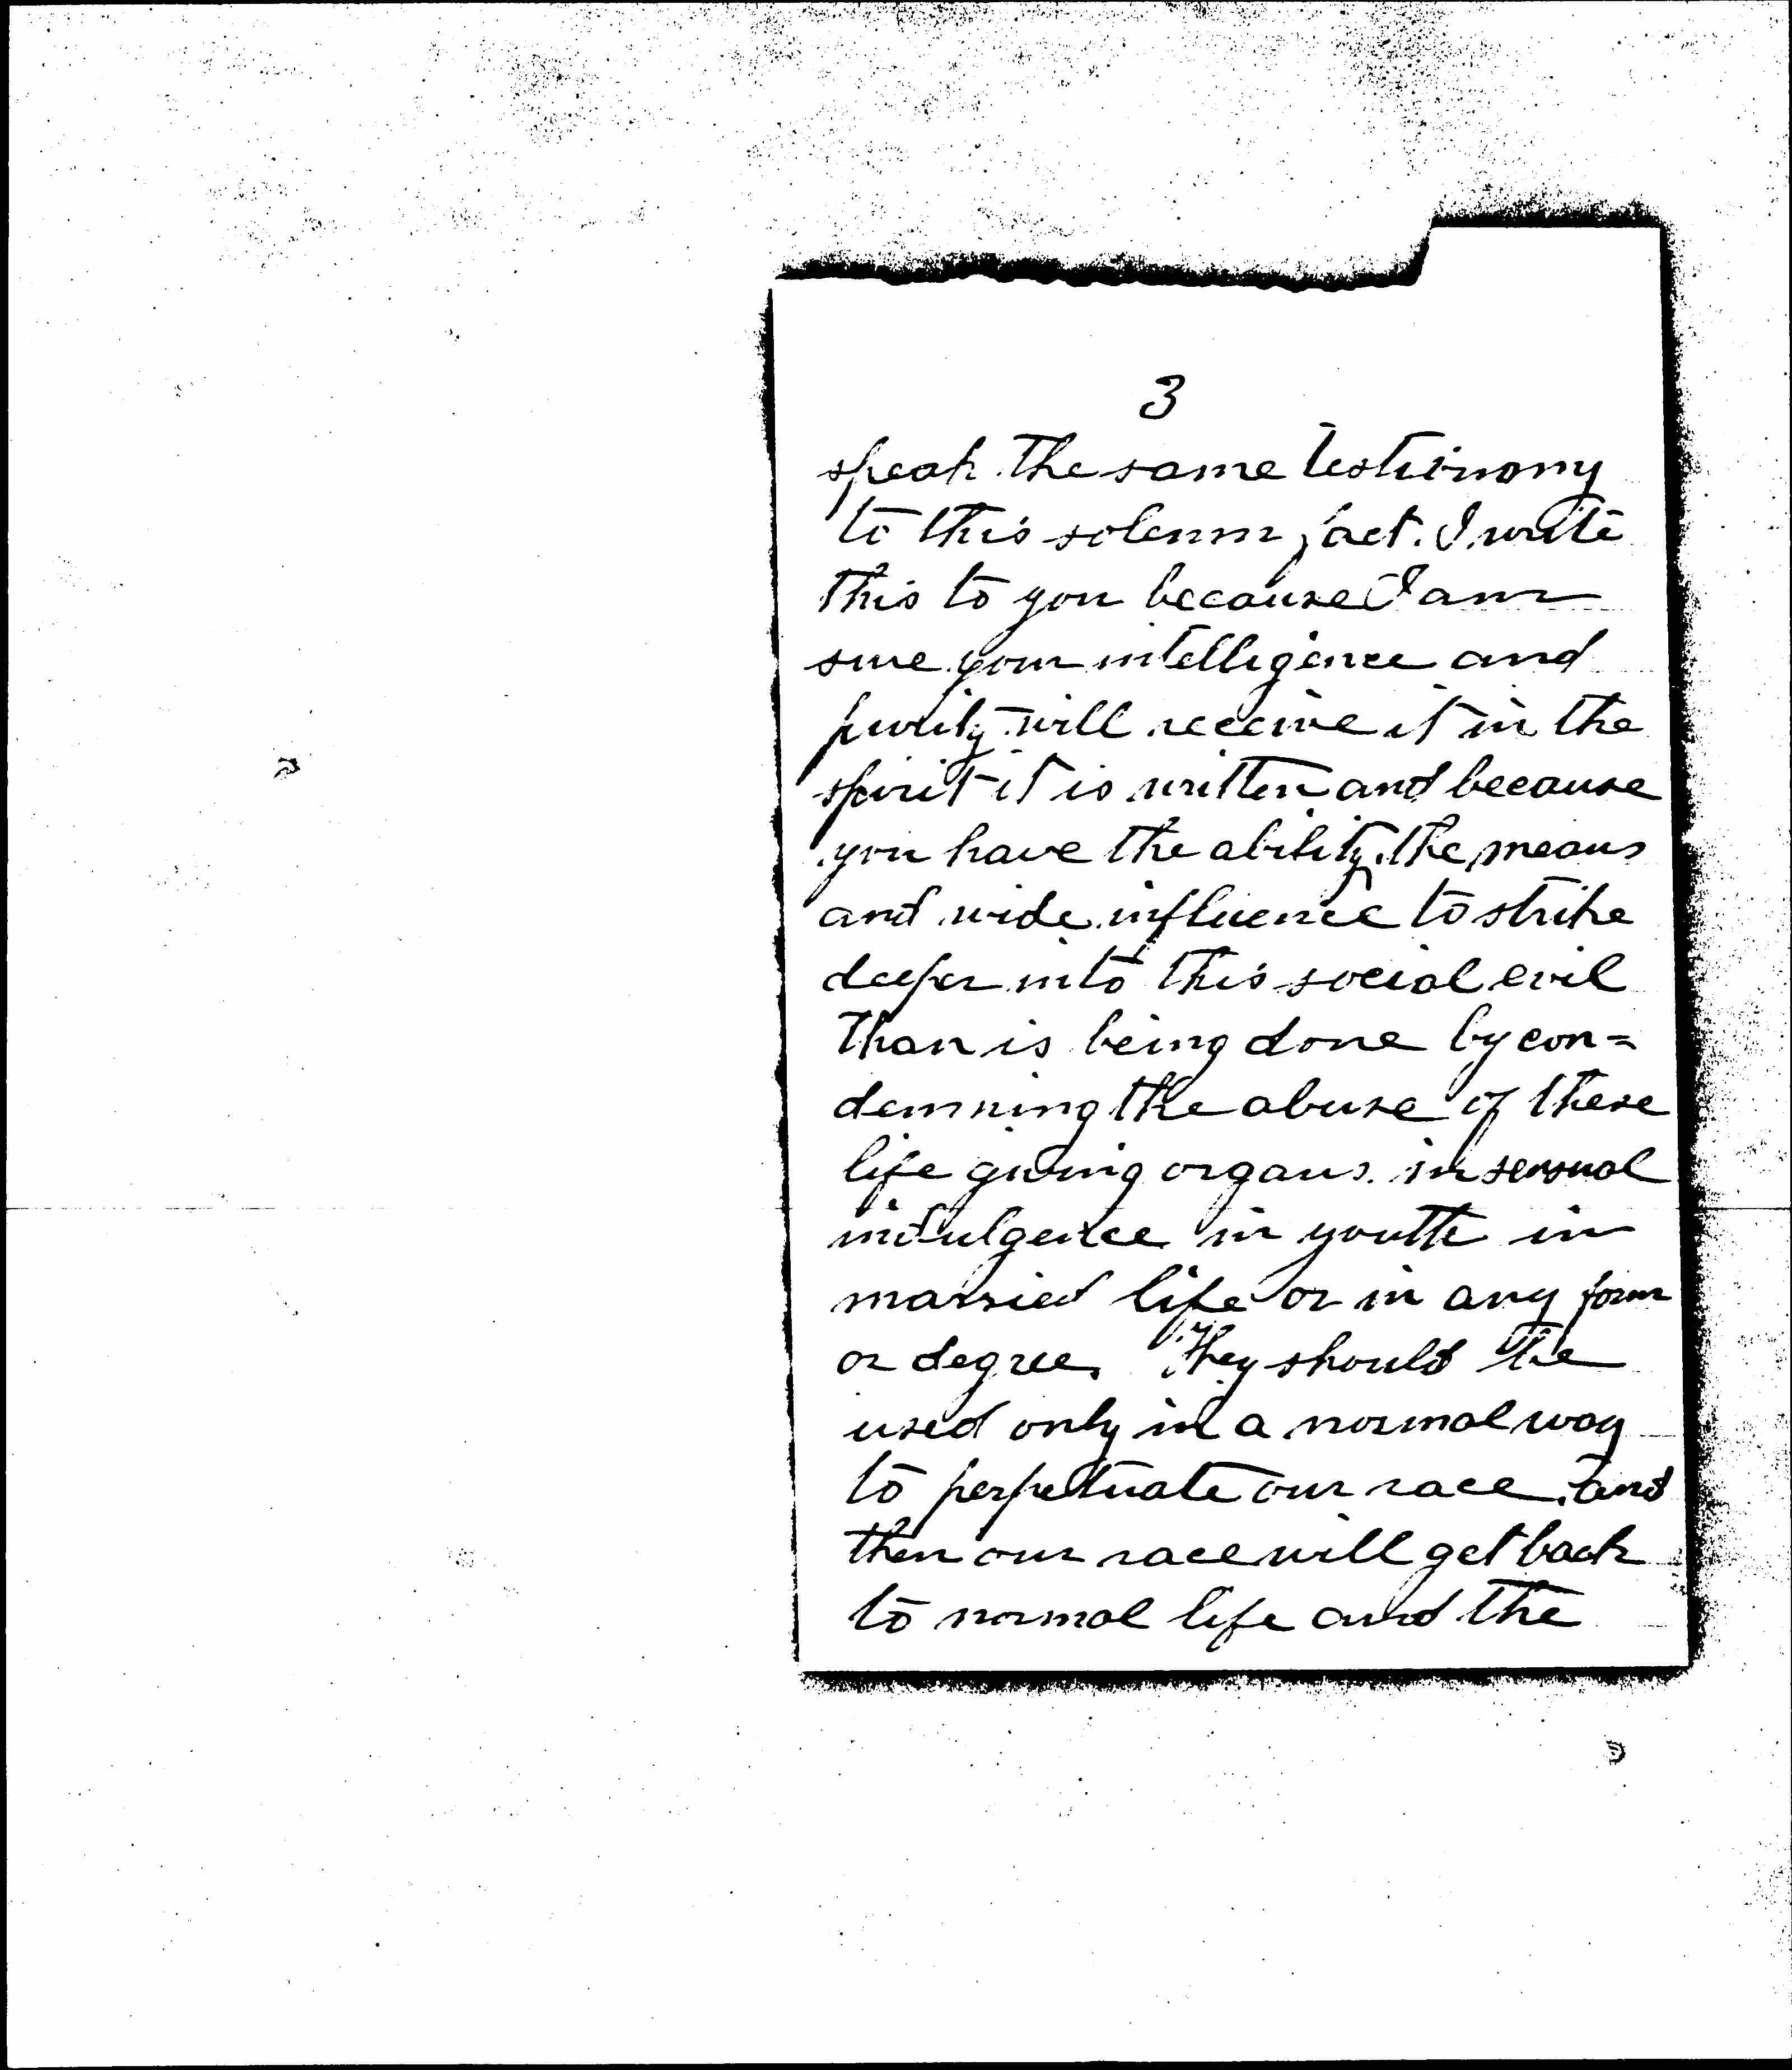 3
speak the same testimony
to this solemn fact. I write
this to you because I am
sure your intelligence and
purity will receive it in the
spirit it is written and because
you have the ability, the means
and wide influence to strike
deeper into this social evil
than is being done by con=
demning the abuse of these
life giving organs. in sensual
indulgence in youth in
married life or in any form
or degree. They should be
used only in a normal way
to perpetuate our race, and
then our race will get back
to normal life and the